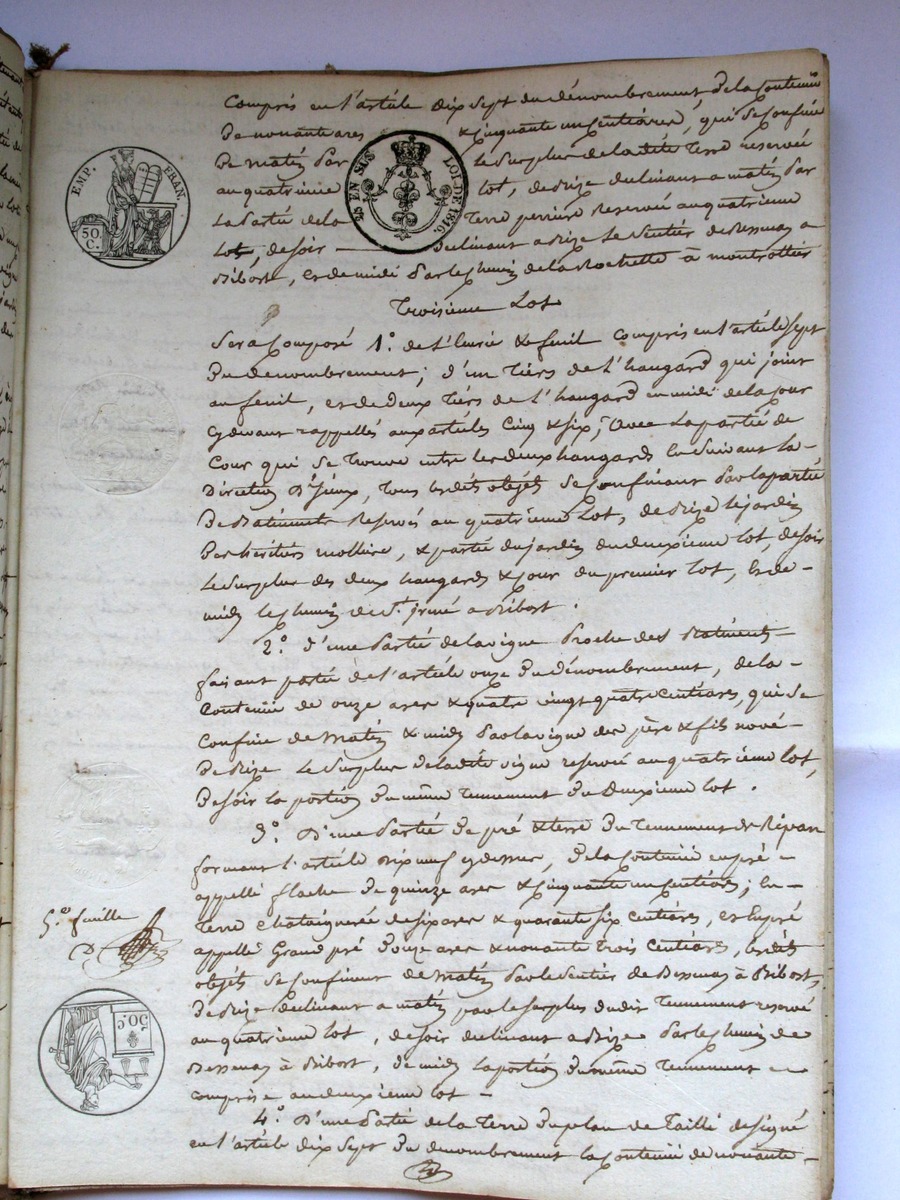 Compris en l'article Dix Sept du dénombrement, de la Contenüe
De nonante ares & Cinquante un Centiares, qui se Confine
De matin Par le Surplus de la dite Terre reservée
au quatrième lot, de Bize declinant a matin Par
La Partie de la Terre perriere Reservée au quatrieme
Lot, de soir declinant a Bize Le Sentier de Bessenay a
Ribost, et de midi Par le Chemin de la Rochette à montrottier
EMP. FRAN.
50 C.
ES EN SUS LOI DE 1816.
Troisieme Lot
Sera Composé 1.° de l'Ecurie & fenil compris en l'article Sept
Du denombrement; d'un Tiers de l'hangard qui joint
au fenil, et de deux Tiers de l'hangard en midi de la Cour
Cydevant rappellés aux articles Cinq & Six; Avec La partie de
Cour qui se Trouve entre les deux hangards en Suivant la
Direction D'Iceux, Tous lesdits objets se Confinant Par la partie
De Batiments Reservés au quatrieme Lot, de Bize le jardin
Des héritiers molliere, & partie du jardin du deuxieme lot, de soir
Le Surplus des deux hangards & Cour du premier lot, & de
midi le Chemin de St. irené a Ribost.
2.° D'une Partie de la vigne Proche des Batiments
faisant partie de l'article onze du dénombrement, de la
Contenüe de onze ares & quatre vingt quatre Centiares, qui se
Confine de Matin & midi Par la vigne des père & fils nové
De Bize Le Surplus de la dite vigne reservée au quatrieme lot,
De soir la portion du même Tennement du Deuxieme lot.
3.° D'une Partie de pré & terre du Tennement de
formant l'article Dix neuf cydessus, de la Contenüe en pré
appellé flache de quinze ares & Cinquante un Centiares; en
Terre Chataignerée de six ares & quarante six Centiares, et en pré
appellé Grand pré D'onze ares & nonante Trois Centiares, lesdits
objets se Confinent de Matin Par le Sentier de Bessenay à Ribost,
De Bize declinant a matin par le surplus dudit Tennement reservé
au quatrieme lot, de soir declinant a Bize Par le Chemin de
Bessenay à Ribost, de midi La portion du même Tennement
comprise au deuxieme lot
5.e feuille
50 C.
4.° D'une Partie de la Terre du plan de Taillé designé
en l'article dix Sept du denombrement la Contenüe de nonante